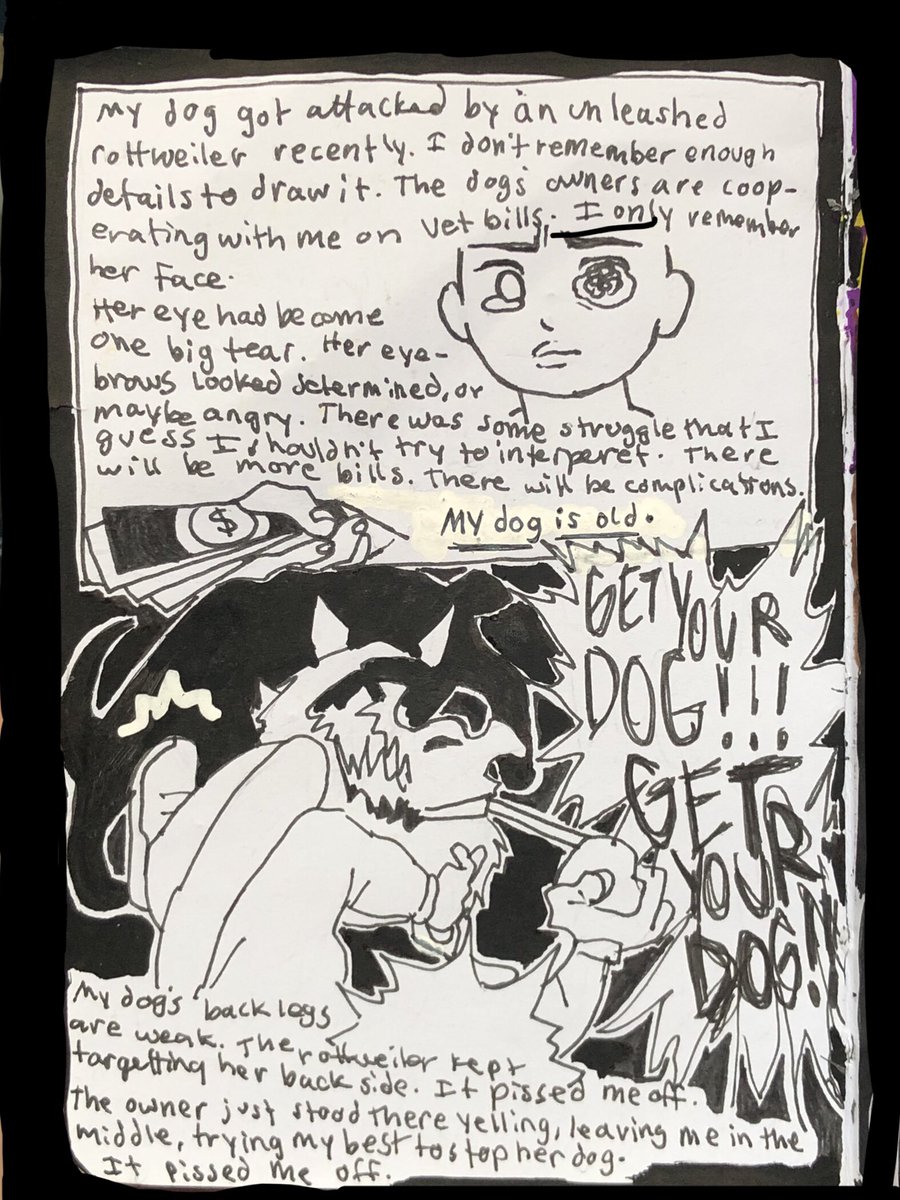 My dog got attacked by an unleashed
rottweiler recently. I don't remember enough
details to draw it. The dogs' owners are coop-
erating with me on vet bills. I only remember
her face.
Her eye had become
one big tear. Her eye-
brows looked determined, or
maybe angry. There was some struggle that I
guess I shouldn't try to interperet. There
will be more bills. There will be complications.
$
My dog is old.
GET YOUR
DOG!!!
GET
YOUR
DOG!!
My dog's back legs
are weak. The rottweiler kept
targetting her back side. It pissed me off.
The owner just stood there yelling, leaving me in the
middle, trying my best to stop her dog.
It pissed me off.